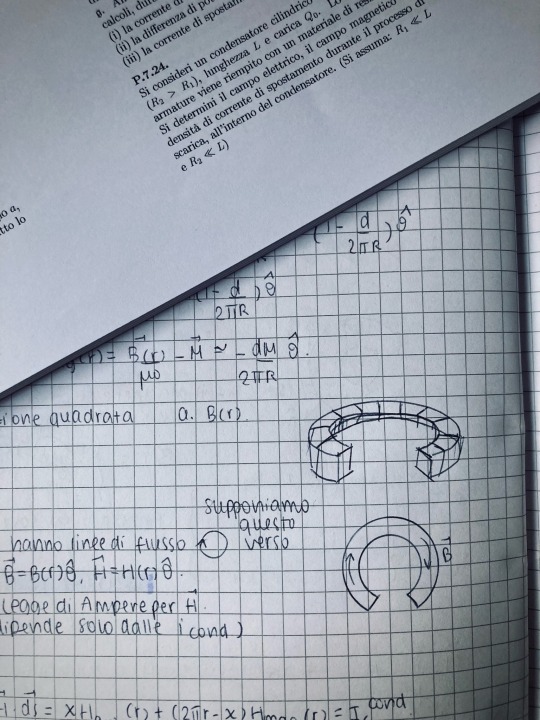 calcoli,
(i) la corrente di
(ii) la differenza di
(iii) la corrente di spostam
P.7.24.
Si consideri un condensatore cilindrico
(R₂ > R₁), lunghezza L e carica Q₀. Lo
armature viene riempito con un materiale di
Si determini il campo elettrico, il campo magnetico
densità di corrente di spostamento durante il processo di
scarica, all'interno del condensatore. (Si assuma: R₁ ≪ L
e R₂ ≪ L)
o a,
tto lo
(1 - d/2πR) θ̂
(1 - d/2πR) θ̂
(r) = B⃗(r)/μ0 - M⃗ ≃ - dM/2πR θ̂.
zione quadrata a. B(r)
supponiamo
questo
verso
hanno linee di flusso
B⃗ = B(r)θ̂, H⃗ = H(r)θ̂.
B⃗
(legge di Ampere per H⃗
dipende solo dalle i cond)
H⃗·ds⃗ = (r) + (2πr-x) (r) = I cond